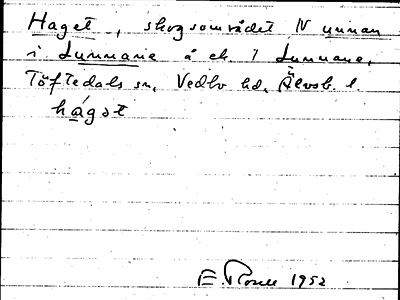 Haget, skogsområdet N unnan
i Lummane å ek. 1 Lummane,
Töftedals sn, Vedbo hd, Älvsb. l.
hágət
E. Rosell 1952